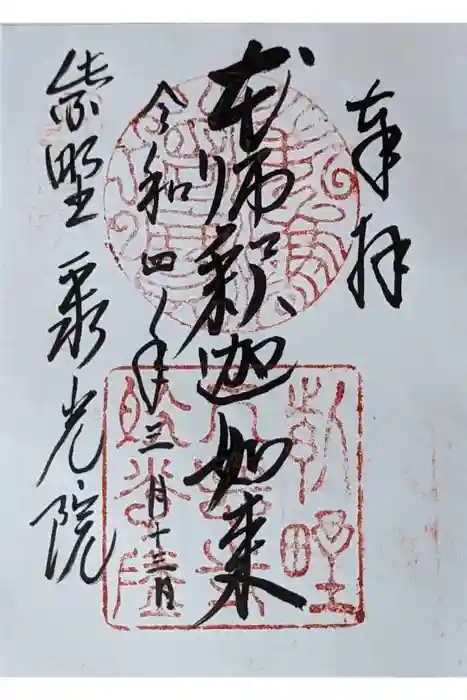 奉拝
本師釈迦如来
令和四年三月十三日
紫野 聚光院